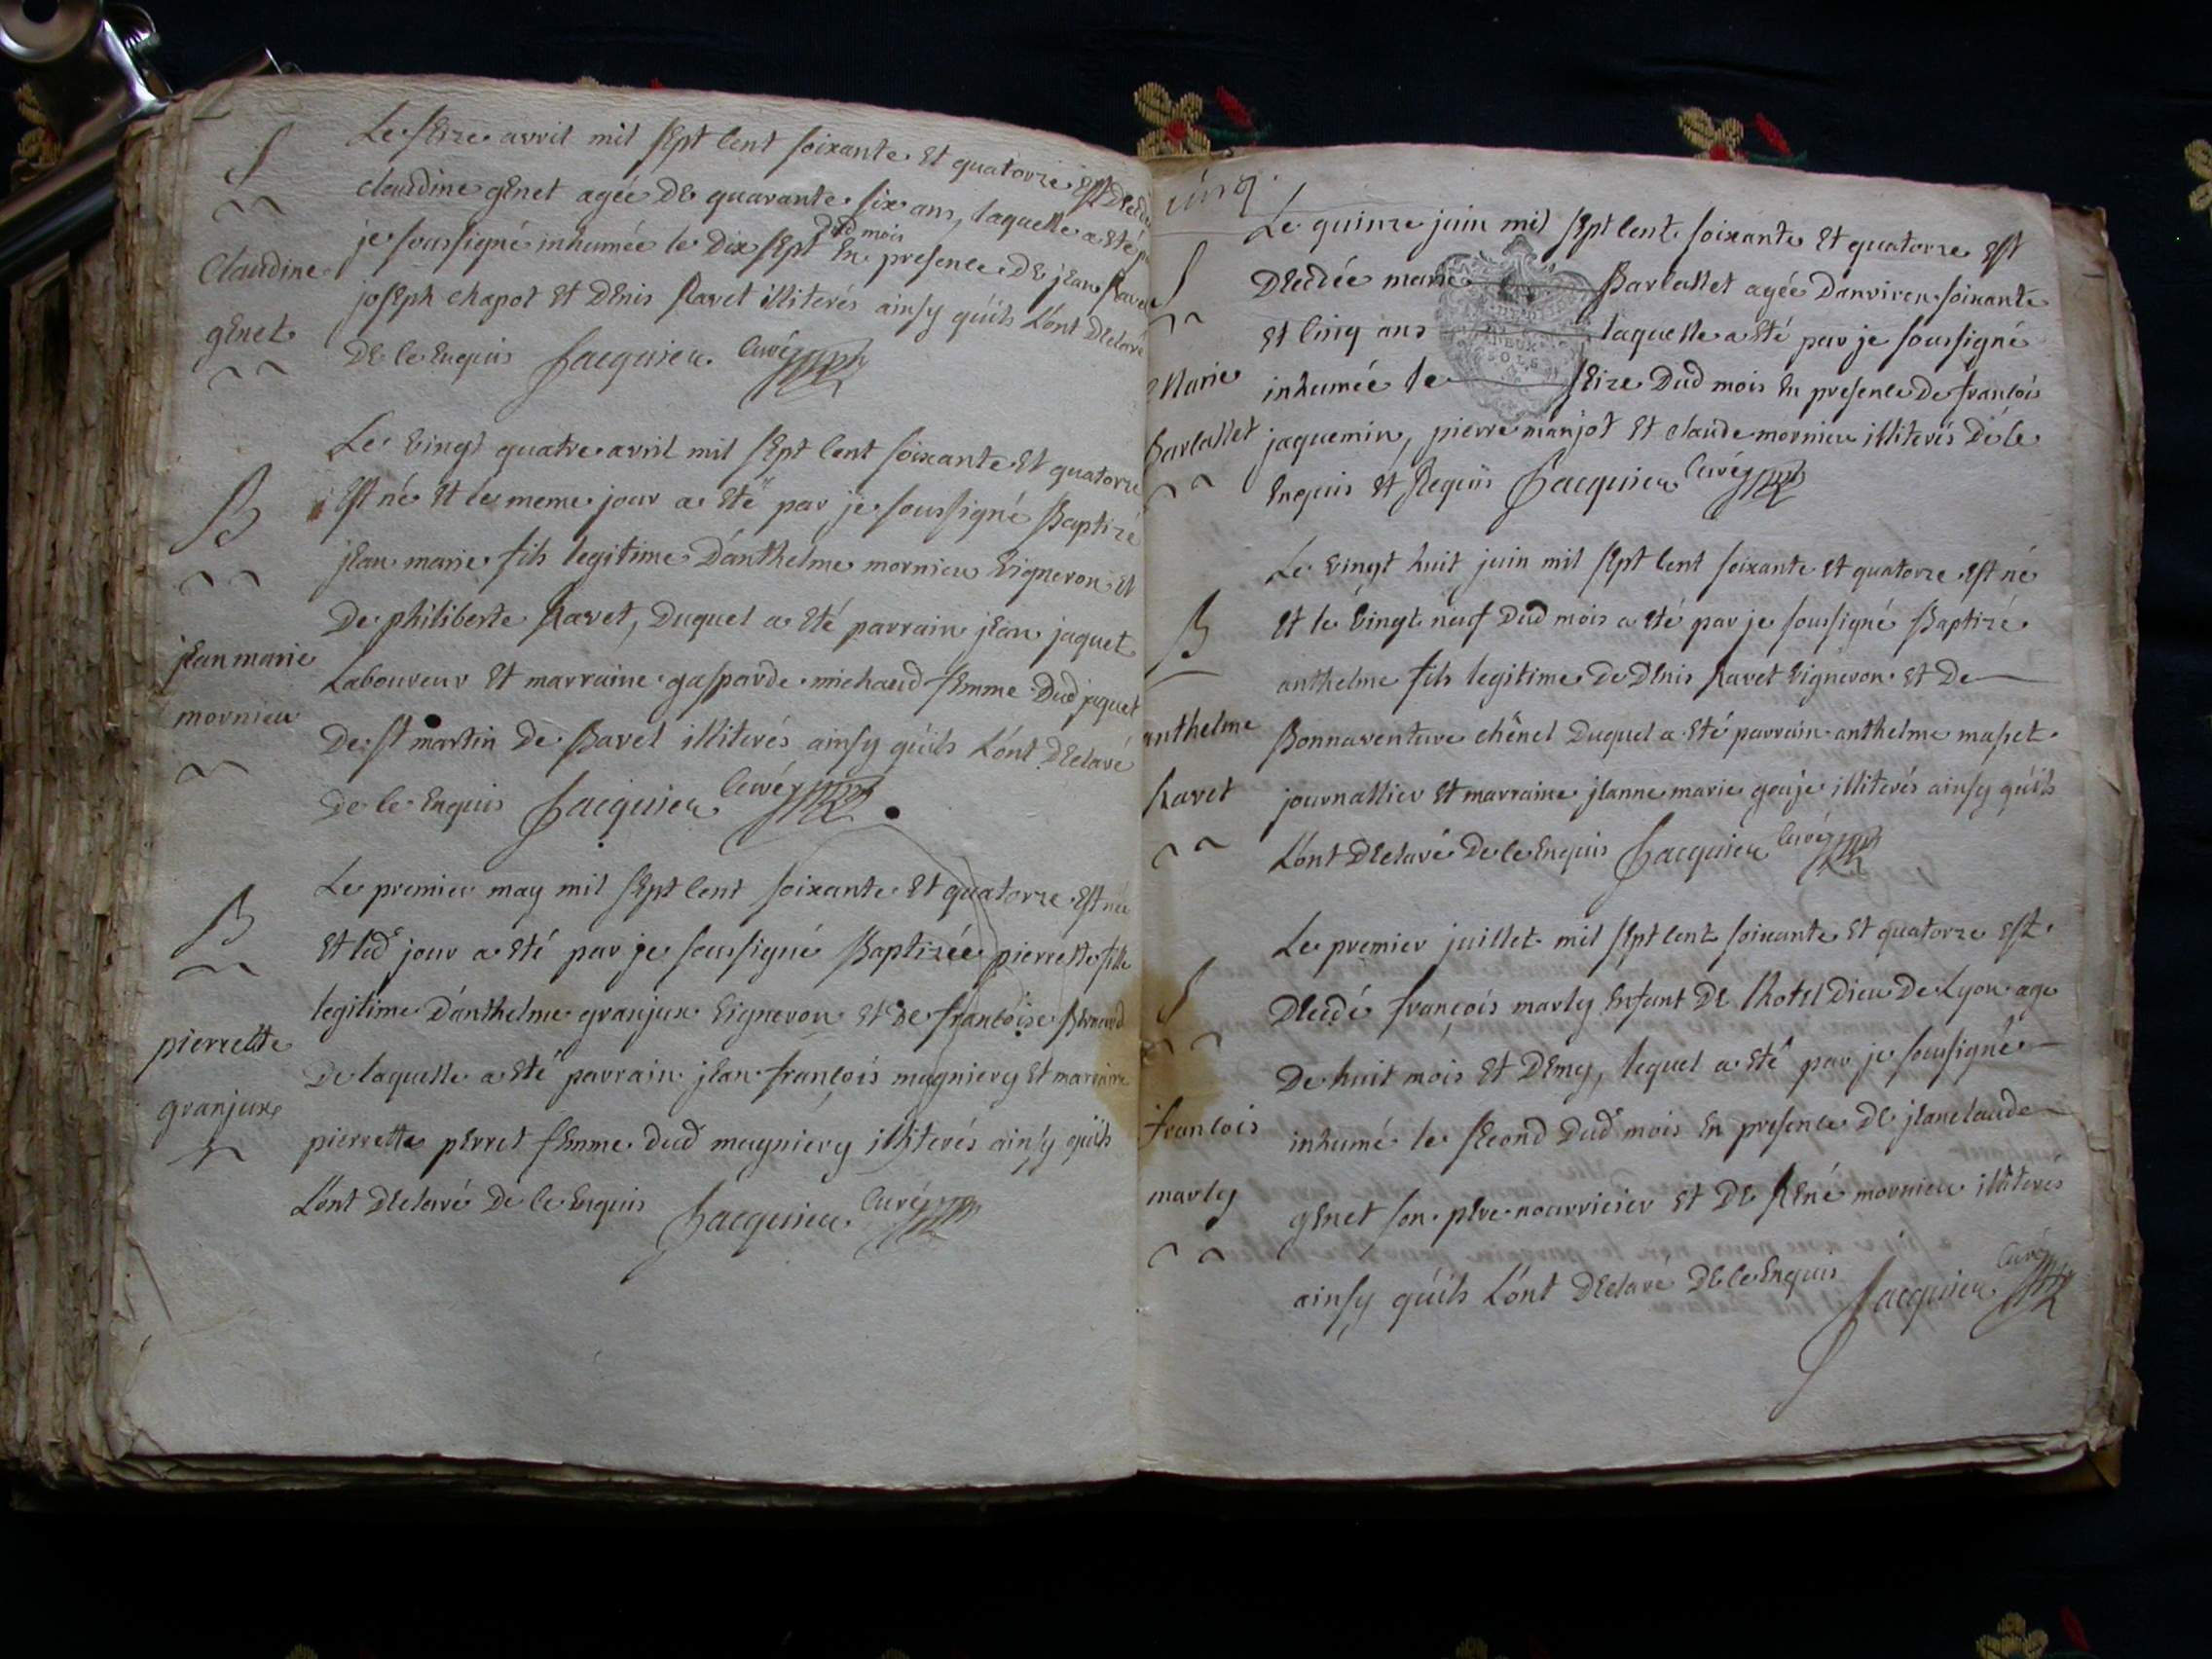 S
Claudine
genet
Le seize avril mil sept cent soixante et quatorze est decedée
claudine genet agée de quarante six ans, laquelle a eté par
je soussigné inhumée le dix sept dud mois en presence de jean Ravet
joseph chapot et denis Ravet illiterés ainsy qu'ils l'ont declaré
de ce enquis Jacquieu curé
B
jean marie
mornieu
Le vingt quatre avril mil sept cent soixante et quatorze
est né et le meme jour a eté par je soussigné Baptizé
jean marie fils legitime d'anthelme mornieu vigneron et
de philiberte Ravet, duquel a eté parrain jean jaquet
Laboureur et marraine gasparde michaud femme dud jaquet
de st martin de Bavel illiterés ainsy qu'ils l'ont declaré
de ce enquis Jacquieu curé
B
pierrette
granjux
Le premier may mil sept cent soixante et quatorze est née
et led jour a eté par je soussigné Baptizée pierrette fille
legitime d'anthelme granjux vigneron et de francoise Bernard
de laquelle a eté parrain jean françois mugniery et marraine
pierrette perret femme dud mugniery illiterés ainsy qu'ils
l'ont declaré de ce enquis Jacquieu curé
cinq
S
Marie
Barcallet
Le quinze juin mil sept cent soixante et quatorze est
decedée marie Barcallet agée d'anviron soixante
et cinq ans laquelle a eté par je soussigné
inhumée le seize dud mois en presence de francois
jaquemin, pierre manjot et claude mornieu illiterés de ce
enquis et requis Jacquieu curé
B
anthelme
Ravet
Le vingt huit juin mil sept cent soixante et quatorze est né
et le vingt neuf dud mois a eté par je soussigné Baptizé
anthelme fils legitime de denis Ravet vigneron et de
Bonnaventure chênel duquel a eté parrain anthelme masset
journallier et marraine jeanne marie gouje illiterés ainsy qu'ils
l'ont declaré de ce enquis Jacquieu curé
S
francois
marly
Le premier juillet mil sept cent soixante et quatorze est
decedé françois marly enfant de l'hotel dieu de Lyon age
de huit mois et demy, lequel a eté par je soussigné
inhumé le second dud mois en presence de jean claude
genet son pere nourricier et de René mornieu illiteres
ainsy qu'ils l'ont declaré de ce enquis Jacquieu curé